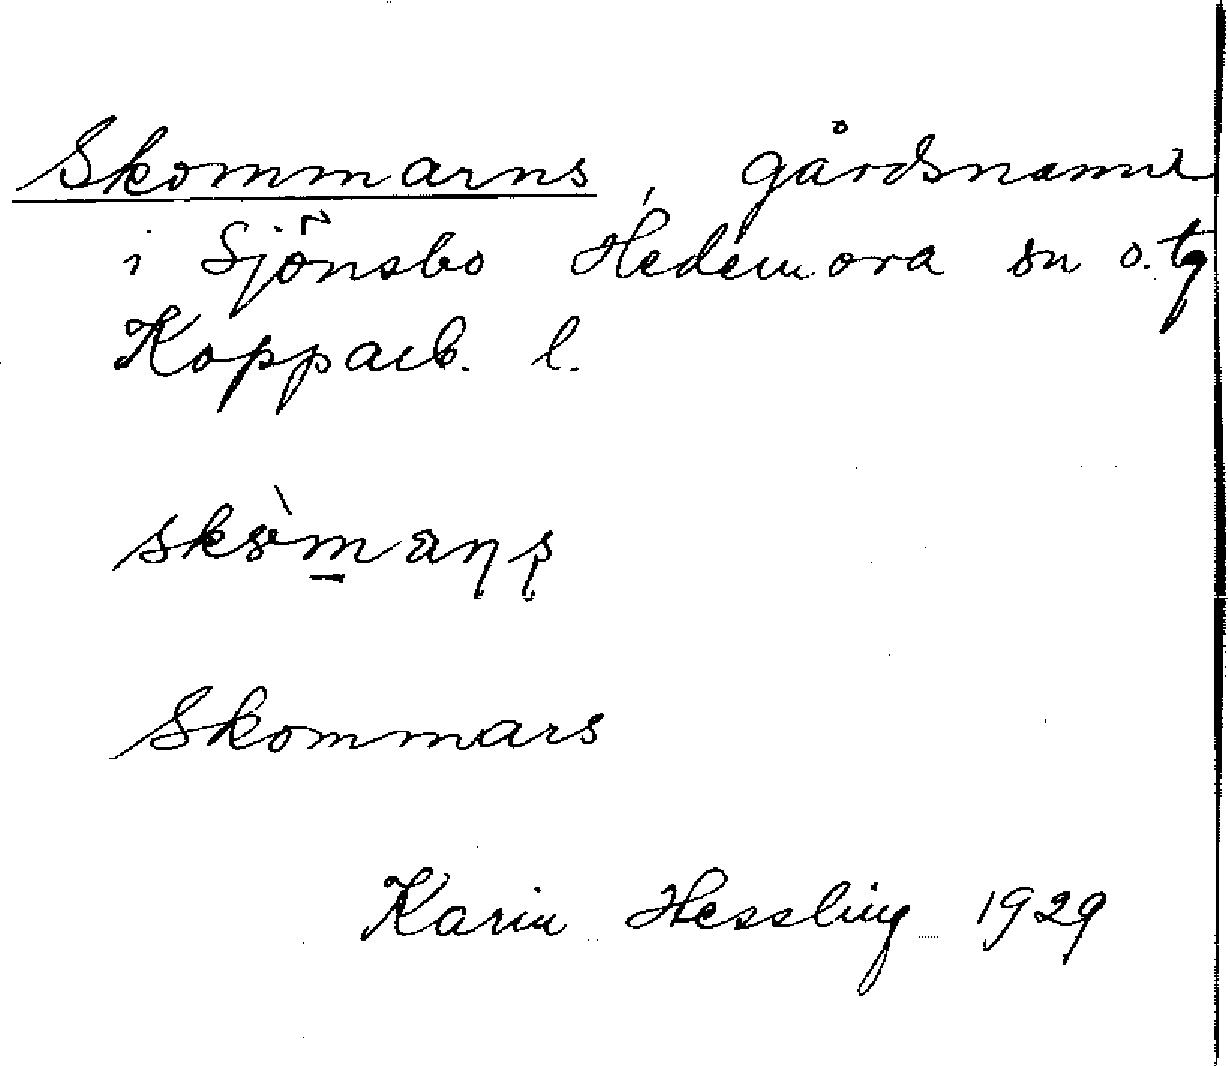 Skommarns, gårdsnamn
i Sjönsbo Hedemora sn o. tg
Kopparb. l.
Skommars
Karin Hessling 1929